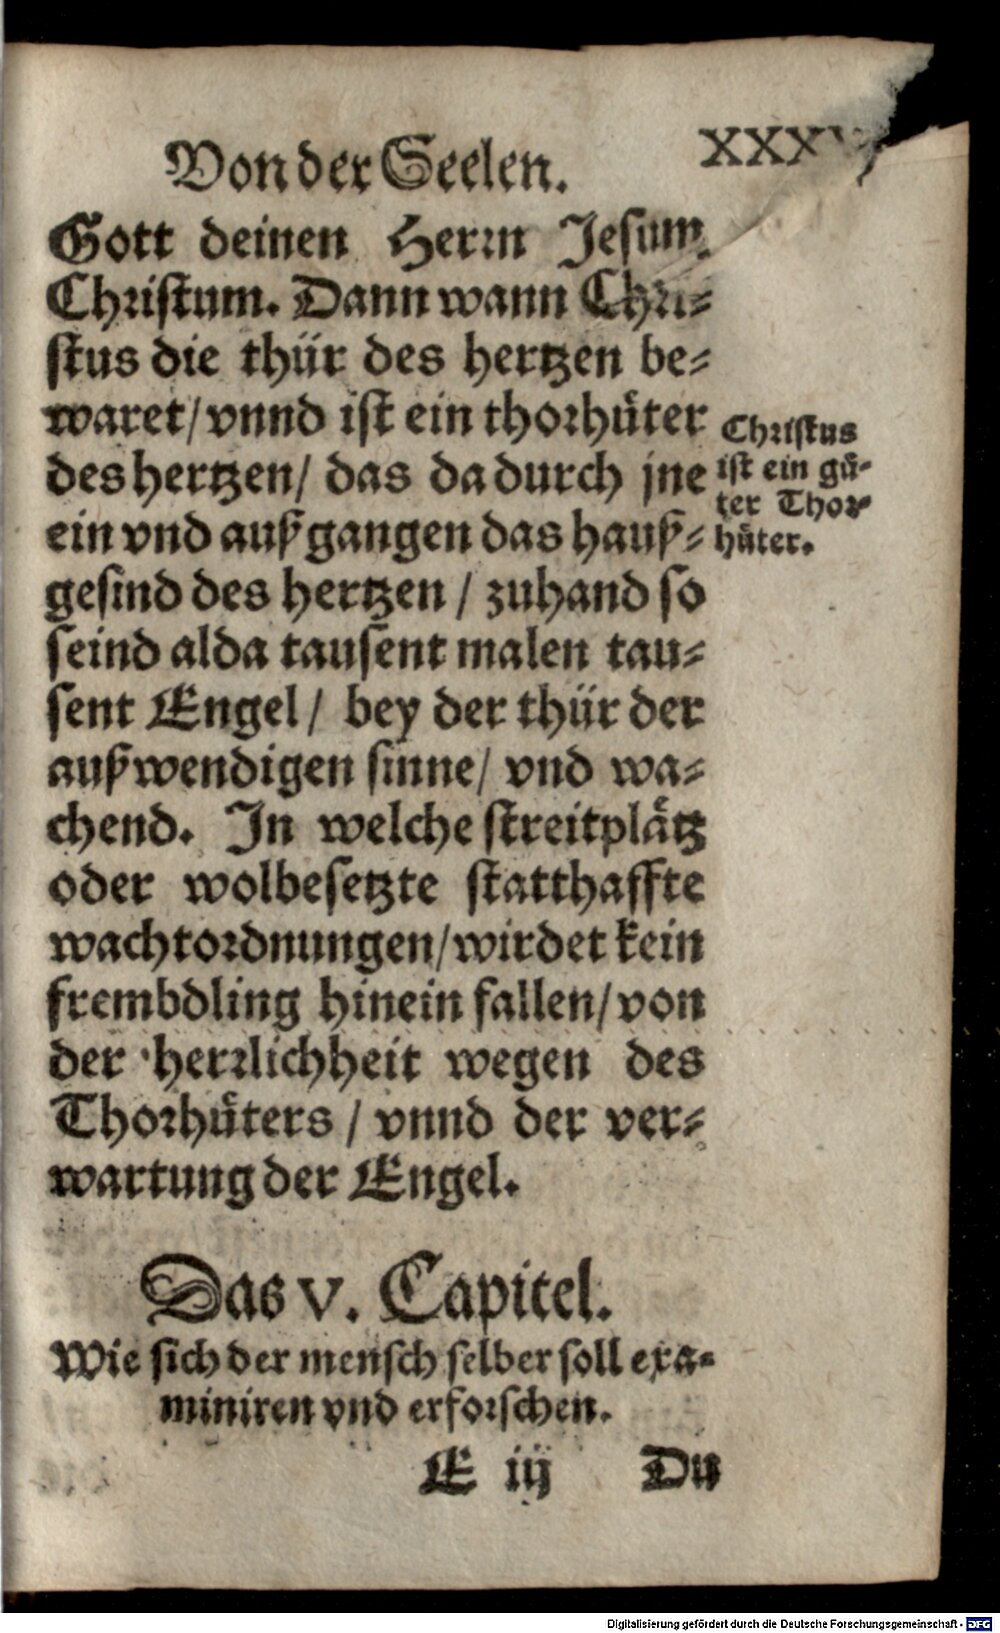 Von der Seelen.
Gott deinen Herrn Jesum
Christum. Dann wann Chri-
stus die thür des hertzen be-
waret/ vnnd ist ein thorhüter
des hertzen/ das da durch jne
ein vnd außgangen das hauß-
gesind des hertzen / zuhand so
seind alda tausent malen tau-
sent Engel/ bey der thür der
außwendigen sinne/ vnd wa-
chend. In welche streitplätz
oder wolbesetzte statthaffte
wachtordnungen/ wirdet kein
frembdling hinein fallen/ von
der herrlichheit wegen des
Thorhüters / vnnd der ver-
wartung der Engel.
Christus
ist ein gů-
ter Thor-
hüter.
Das V. Capitel.
Wie sich der mensch selber soll exa-
miniren vnd erforschen.
E iij Du
Digitalisierung gefördert durch die Deutsche Forschungsgemeinschaft - DFG